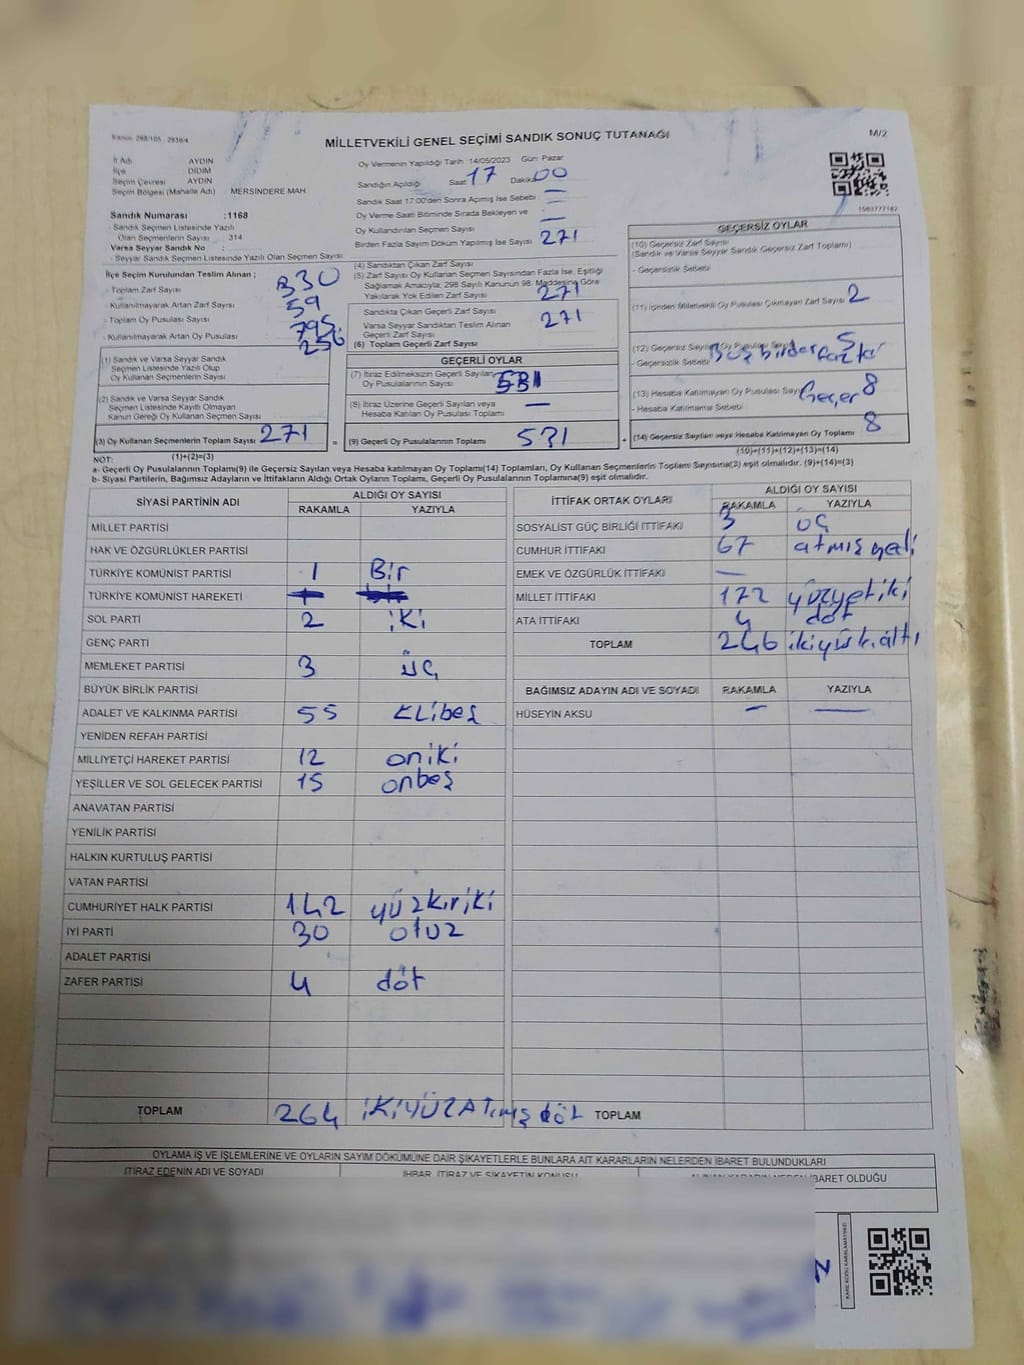 Kanun 298/105 - 2839/4
MİLLETVEKİLİ GENEL SEÇİMİ SANDIK SONUÇ TUTANAĞI
M/2
İl Adı AYDIN
İlçe DİDİM
Seçim Çevresi AYDIN
Seçim Bölgesi (Mahalle Adı) MERSİNDERE MAH.
Sandık Numarası : 1168
- Sandık Seçmen Listesinde Yazılı
Olan Seçmenlerin Sayısı : 314
Varsa Seyyar Sandık No :
- Seyyar Sandık Seçmen Listesinde Yazılı Olan Seçmen Sayısı
İlçe Seçim Kurulundan Teslim Alınan ;
- Toplam Zarf Sayısı 330
- Kullanılmayarak Artan Zarf Sayısı 59
- Toplam Oy Pusulası Sayısı 795
- Kullanılmayarak Artan Oy Pusulası 256
(1) Sandık ve Varsa Seyyar Sandık
Seçmen Listesinde Yazılı Olup
Oy Kullanan Seçmenlerin Sayısı
(2) Sandık ve Varsa Seyyar Sandık
Seçmen Listesinde Kayıtlı Olmayan
Kanun Gereği Oy Kullanan Seçmen Sayısı
(3) Oy Kullanan Seçmenlerin Toplam Sayısı 271
(1)+(2)=(3)
Oy Vermenin Yapıldığı Tarih 14/05/2023 Gün Pazar
Sandığın Açıldığı Saat 17 Dakika 00
Sandık Saat 17:00'den Sonra Açılmış İse Sebebi —
Oy Verme Saati Bitiminde Sırada Bekleyen ve
Oy Kullandırılan Seçmen Sayısı —
Birden Fazla Sayım Döküm Yapılmış İse Sayısı
(4) Sandıktan Çıkan Zarf Sayısı 271
(5) Zarf Sayısı Oy Kullanan Seçmen Sayısından Fazla İse, Eşitliği
Sağlamak Amacıyla; 298 Sayılı Kanunun 98. Maddesine Göre
Yakılarak Yok Edilen Zarf Sayısı
Sandıkta Çıkan Geçerli Zarf Sayısı 271
Varsa Seyyar Sandıktan Teslim Alınan
Geçerli Zarf Sayısı
(6) Toplam Geçerli Zarf Sayısı 271
GEÇERLİ OYLAR
(7) İtiraz Edilmeksizin Geçerli Sayılan
Oy Pusulalarının Sayısı
(8) İtiraz Üzerine Geçerli Sayılan veya
Hesaba Katılan Oy Pusulası Toplamı —
= (9) Geçerli Oy Pusulalarının Toplamı 531 +
1082777182
GEÇERSİZ OYLAR
(10) Geçersiz Zarf Sayısı
(Sandık ve Varsa Seyyar Sandık Geçersiz Zarf Toplamı)
- Geçersizlik Sebebi
(11) İçinden Milletvekili Oy Pusulası Çıkmayan Zarf Sayısı 2
(12) Geçersiz Sayılan Oy Pusulası Sayısı 5
- Geçersizlik Sebebi
(13) Hesaba Katılmayan Oy Pusulası Sayısı 8
- Hesaba Katılmama Sebebi
(14) Geçersiz Sayılan veya Hesaba Katılmayan Oy Toplamı 8
(10)+(11)+(12)+(13)=(14)
NOT:
a- Geçerli Oy Pusulalarının Toplamı(9) ile Geçersiz Sayılan veya Hesaba katılmayan Oy Toplamı(14) Toplamları, Oy Kullanan Seçmenlerin Toplam Sayısına(3) eşit olmalıdır. (9)+(14)=(3)
b- Siyasi Partilerin, Bağımsız Adayların ve İttifakların Aldığı Ortak Oyların Toplamı, Geçerli Oy Pusulalarının Toplamına(9) eşit olmalıdır.
SİYASİ PARTİNİN ADI ALDIĞI OY SAYISI
RAKAMLA YAZIYLA
MİLLET PARTİSİ
HAK VE ÖZGÜRLÜKLER PARTİSİ
TÜRKİYE KOMÜNİST PARTİSİ 1 Bir
TÜRKİYE KOMÜNİST HAREKETİ
SOL PARTİ 2 iki
GENÇ PARTİ
MEMLEKET PARTİSİ 3 üç
BÜYÜK BİRLİK PARTİSİ
ADALET VE KALKINMA PARTİSİ 55 ELibeş
YENİDEN REFAH PARTİSİ
MİLLİYETÇİ HAREKET PARTİSİ 12 oniki
YEŞİLLER VE SOL GELECEK PARTİSİ 15 onbeş
ANAVATAN PARTİSİ
YENİLİK PARTİSİ
HALKIN KURTULUŞ PARTİSİ
VATAN PARTİSİ
CUMHURİYET HALK PARTİSİ 142 yüzkıriki
İYİ PARTİ 30 otuz
ADALET PARTİSİ
ZAFER PARTİSİ 4 döt
TOPLAM 264 iKiYÜZATmış döt
İTTİFAK ORTAK OYLARI ALDIĞI OY SAYISI
RAKAMLA YAZIYLA
SOSYALİST GÜÇ BİRLİĞİ İTTİFAKI 3 üç
CUMHUR İTTİFAKI 67 atmışyedi
EMEK VE ÖZGÜRLÜK İTTİFAKI —
MİLLET İTTİFAKI 172 yüzyetiki
ATA İTTİFAKI 4 döt
TOPLAM 246 ikiyüskaltı
BAĞIMSIZ ADAYIN ADI VE SOYADI RAKAMLA YAZIYLA
HÜSEYİN AKSU — —
TOPLAM
OYLAMA İŞ VE İŞLEMLERİNE VE OYLARIN SAYIM DÖKÜMÜNE DAİR ŞİKAYETLERLE BUNLARA AİT KARARLARIN NELERDEN İBARET BULUNDUKLARI
İTİRAZ EDENİN ADI VE SOYADI
İHBAR, İTİRAZ VE ŞİKAYETİN KONUSU
ALINAN KARARIN NEDEN İBARET OLDUĞU
KARE KODU KARALAMAYINIZ!